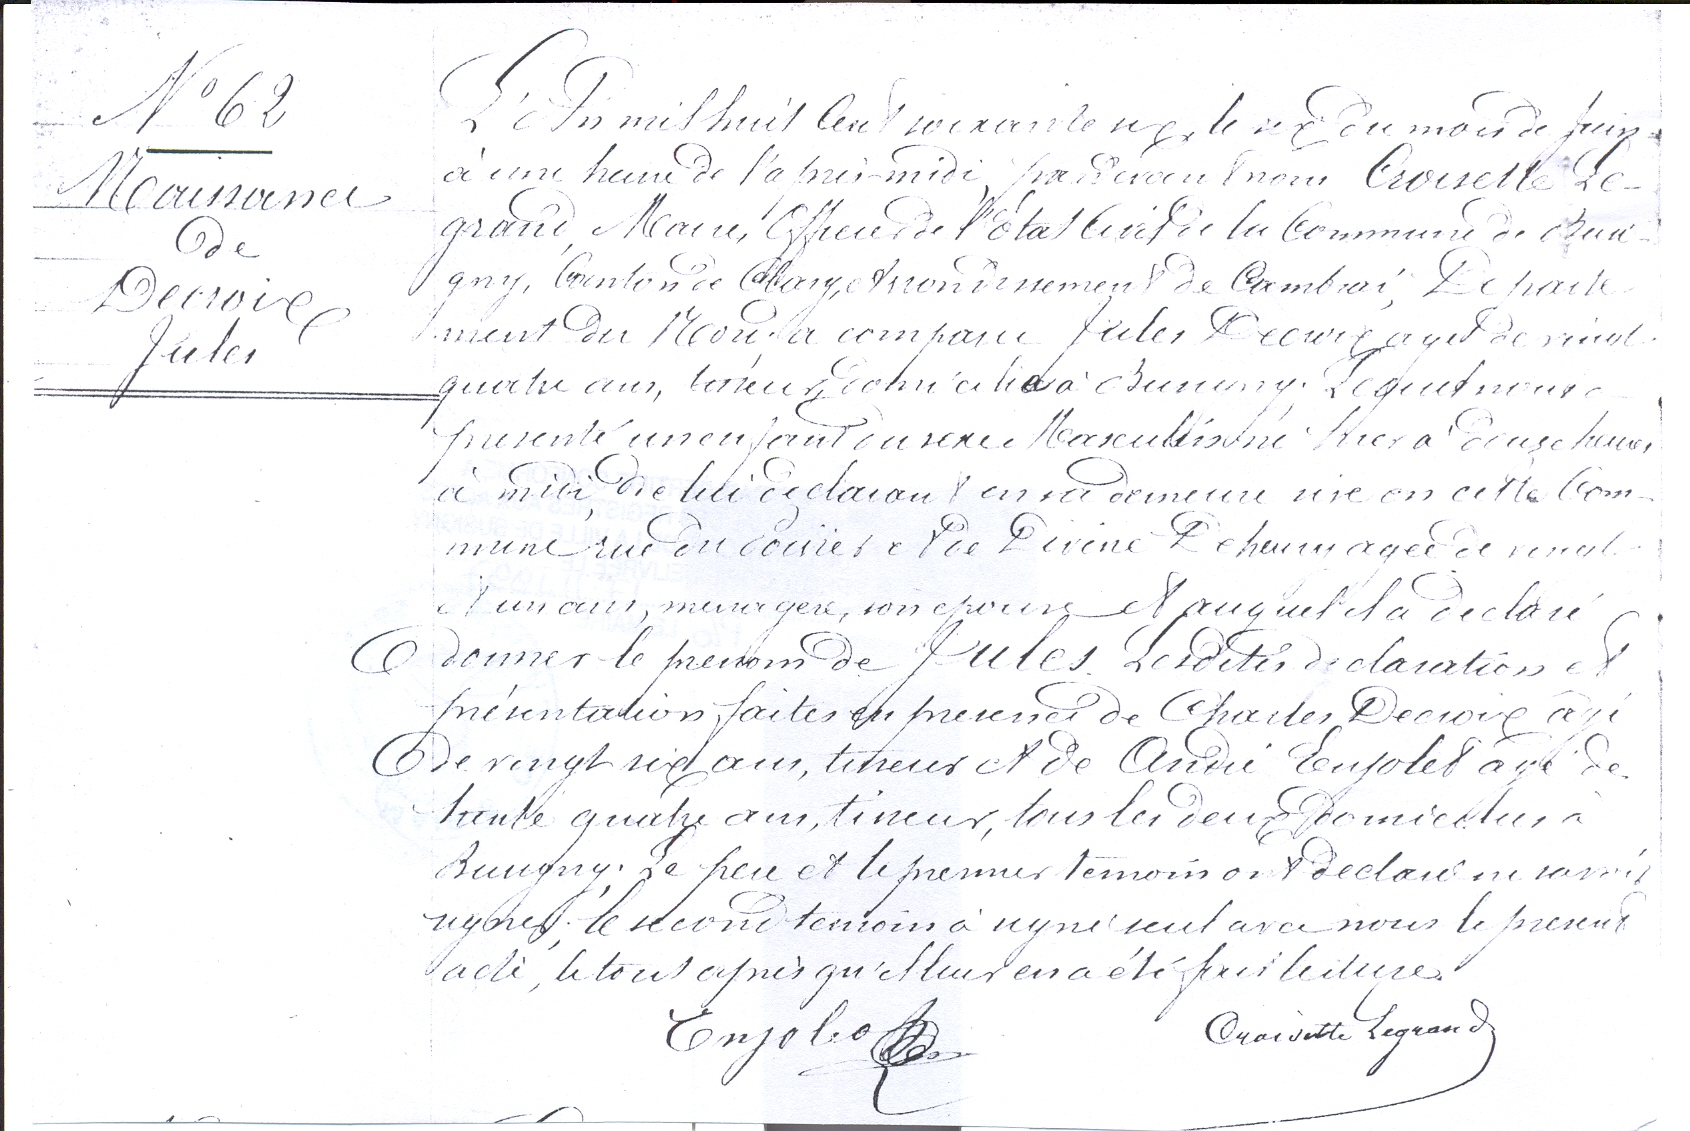 N° 62
Naissance
de
Decroix
Jules
L'An mil huit Cent soixante six, le six du mois de Juin
à une heure de l'après-midi, par devant nous Croisette Le-
grand, Maire, Officier de l'Etat Civil de la Commune de Busi-
gny, Canton de Clary, Arrondissement de Cambrai, Departe-
ment du Nord a comparu Jules Decroix agé de vingt
quatre ans, tisseur, domicilié à Busigny. Lequel nous a
présenté un enfant du sexe Masculin né hier à douze heures
à midi, de lui déclarant en sa demeure sise en cette Com-
mune rue du et de Divine Dehaussy agée de vingt
et un ans, menagere, son epouse et auquel il a declaré
donner le prenom de Jules. Lesdites declaration et
présentation faites en presence de Charles Decroix âgé
de vingt six ans, tisseur et de André Enjolet âgé de
trente quatre ans, tisseur, tous les deux domiciliés à
Busigny. Le pere et le premier temoin ont declaré ne savoir
signer, le second temoin a signé seul avec nous le present
acte, le tout après qu'il leur en a été fait lecture.
Croisette Legrand